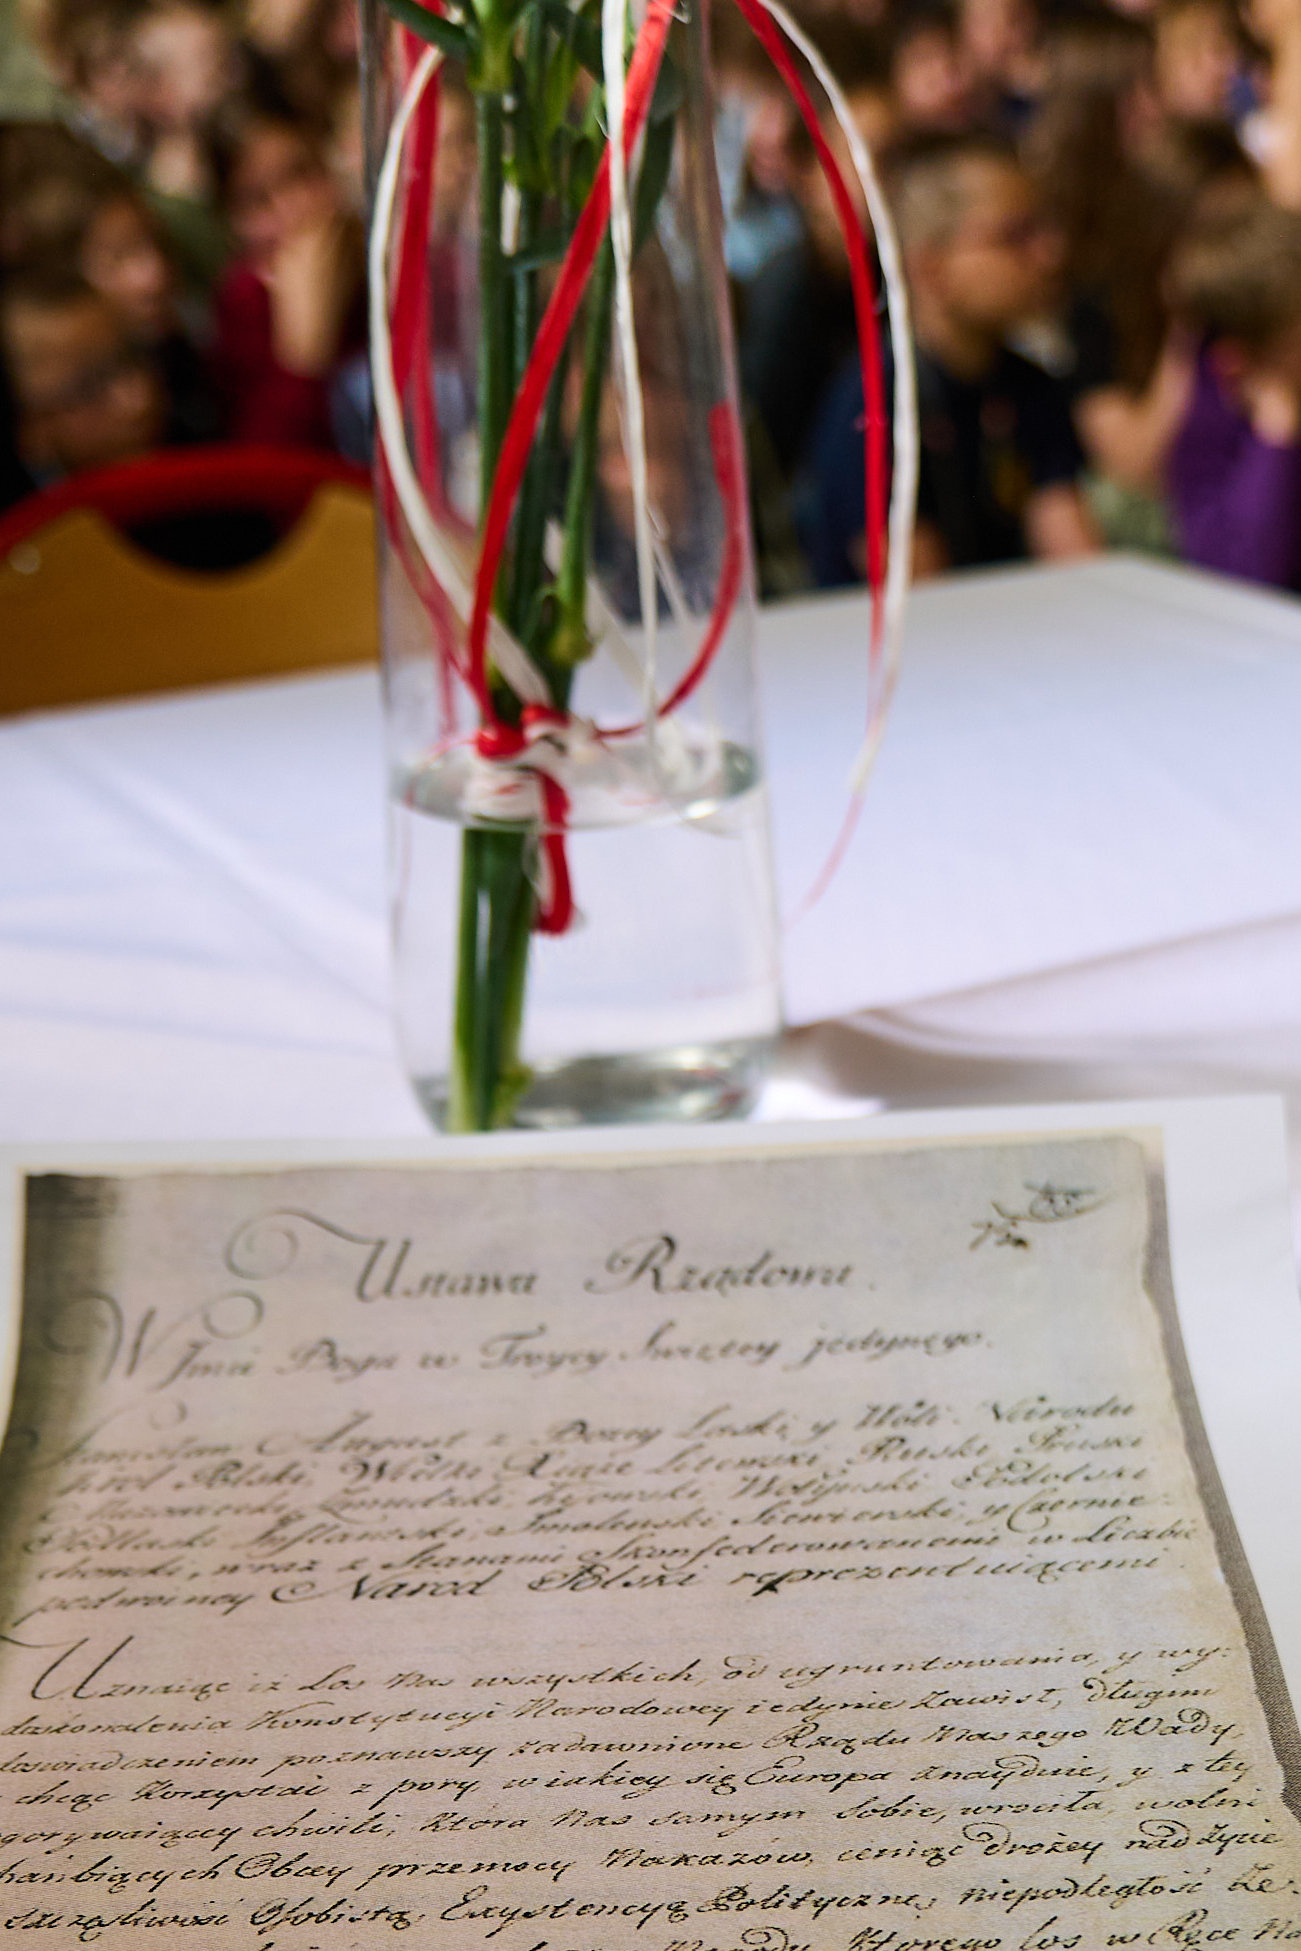 Ustawa Rządowa.
W Imie Boga w Troycy Swiętey jedynego.
Stanisław August z Bozey Łaski, y Woli Narodu
Krol Polski, Wielki Xiąże Litewski, Ruski, Pruski
Mazowiecki, Zmudzki, Kijowski, Wołyński, Podolski
Podlaski, Inflantski, Smolenski, Siewierski, y Czernie:
chowski, wraz z Stanami Skonfederowanemi w Liczbie
podwoiney Narod Polski reprezentuiącemi.
Uznaiąc iz Los Nas wszystkich, od ugruntowania, y wy:
doskonalenia Konstytucyi Narodowey iedynie Zawisł, długim
doswiadczeniem poznawszy zadawnione Rządu Naszego Wady,
chcąc Korzystać z pory, w iakiey się Europa znayduie, y z tey
gorywaiącey chwili, Ktora Nas samym Sobie, wrociła, wolni
hanbiących Obcey przemocy Nakazów, ceniąc drożey nad życie
szczęsliwość Osobistą, Exystencyą Polityczną, niepodległość Ze:
Narodu, Ktorego los w Ręce Na